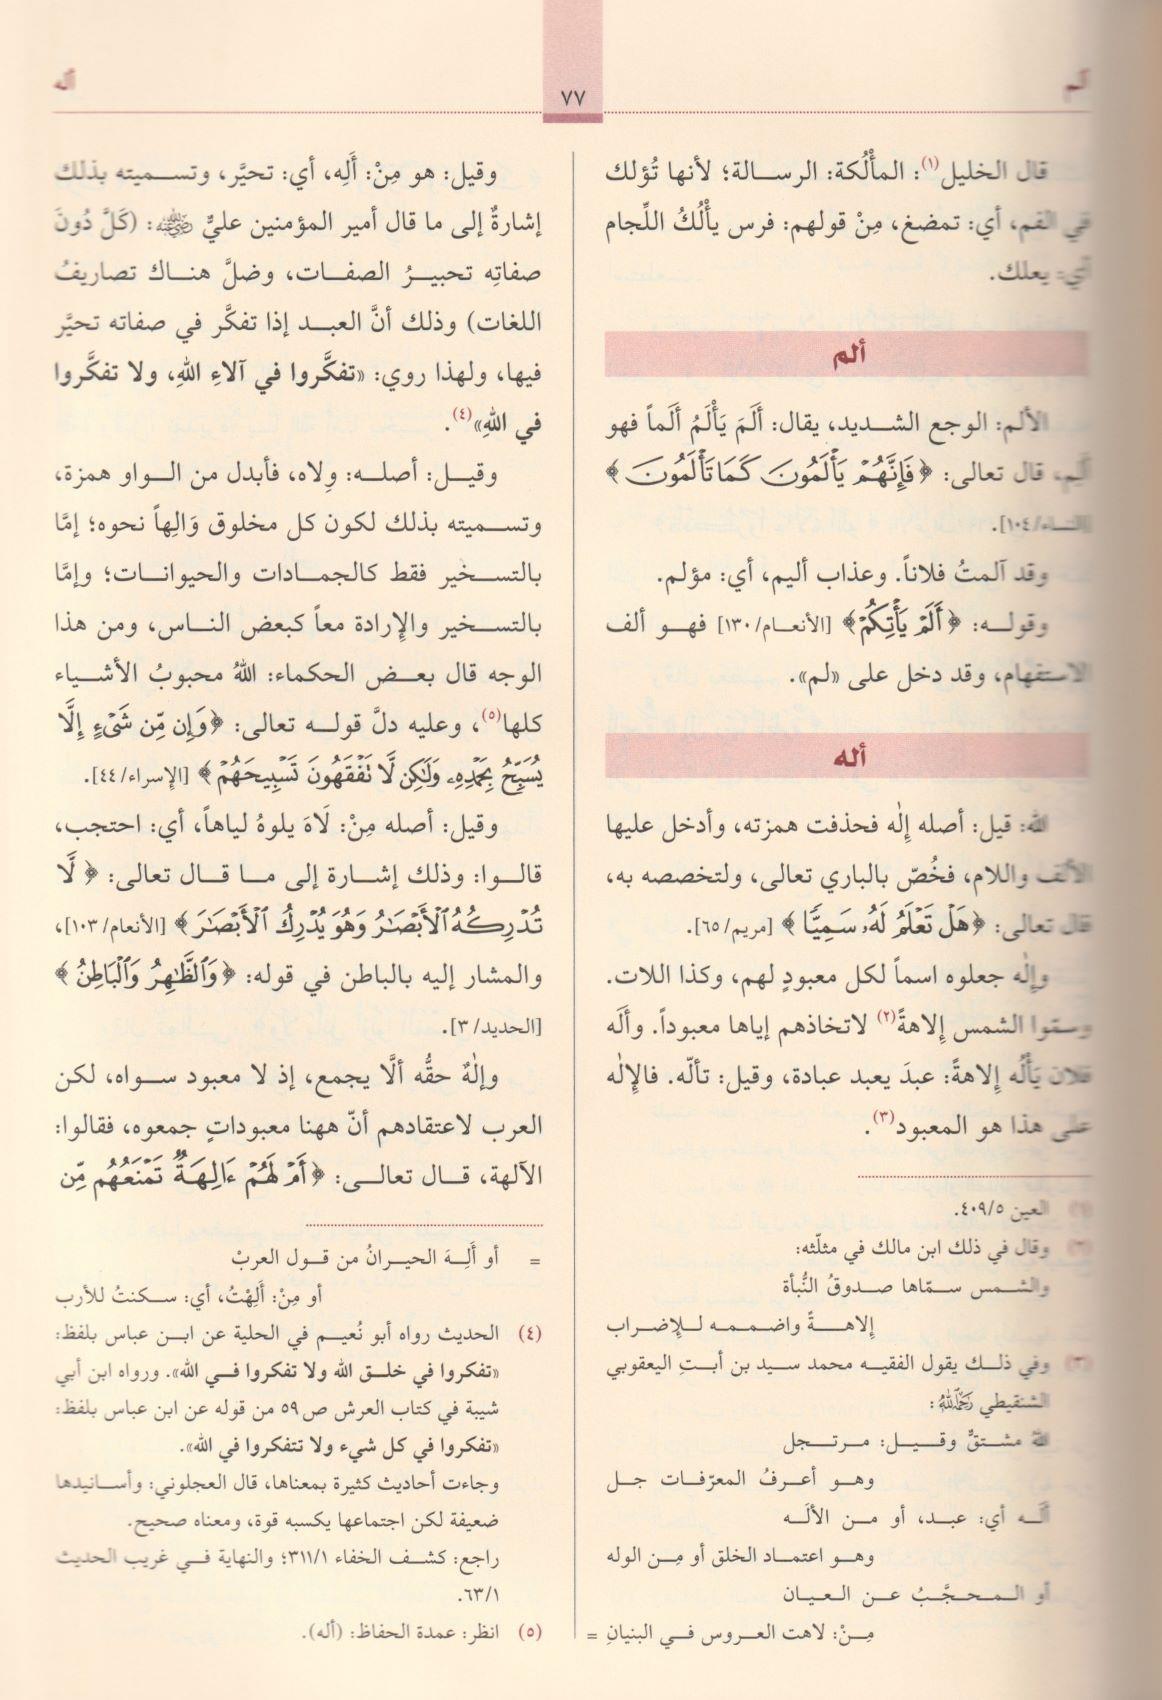 ألم
٧٧
أله
قال الخليل(١): المألُكة: الرسالة؛ لأنها تُؤلك
في الفم، أي: تمضغ، مِنْ قولهم: فرس يألُكُ اللِّجام
أي: يعلك.
ألم
الألم: الوجع الشديد، يقال: أَلَمَ يَأْلَمُ أَلَماً فهو
أَلِم، قال تعالى: ﴿فَإِنَّهُمْ يَأْلَمُونَ كَمَا تَأْلَمُونَ﴾
[النساء/١٠٤].
وقد آلمتُ فلاناً. وعذاب أليم، أي: مؤلم.
وقوله: ﴿أَلَمْ يَأْتِكُمْ﴾ [الأنعام/١٣٠] فهو ألف
الاستفهام، وقد دخل على «لم».
أله
الله: قيل: أصله إلٰه فحذفت همزته، وأدخل عليها
الألف واللام، فخُصّ بالباري تعالى، ولتخصصه به،
قال تعالى: ﴿هَلْ تَعْلَمُ لَهُۥ سَمِيًّا﴾ [مريم/٦٥].
وإلٰه جعلوه اسماً لكل معبودٍ لهم، وكذا اللات.
وسمّوا الشمس إِلاهةً(٢) لاتخاذهم إياها معبوداً. وألَه
فلان يَأْلُه إلاهةً: عبدَ يعبد عبادة، وقيل: تألّه. فالإلٰه
على هذا هو المعبود(٣).
(١) العين ٤٠٩/٥.
(٢) وقال في ذلك ابن مالك في مثلّثه:
والشمس سمّاها صدوقُ النُّبأة
إلاهةً واضممه للإضراب
(٣) وفي ذلك يقول الفقيه محمد سيد بن أبتِ اليعقوبي
الشنقيطي رَحِمَهُ ٱللَّهُ:
اللهُ مشتقٌّ وقيل: مرتجل
وهو أعرفُ المعرّفات جل
ألَه أي: عبد، أو من الألَه
وهو اعتماد الخلق أو مِن الوله
أو المحجَّبُ عن العيان
مِنْ: لاهت العروس في البنيانِ =
وقيل: هو مِنْ: أَلِه، أي: تحيَّر، وتسميته بذلك
إشارةٌ إلى ما قال أمير المؤمنين عليٌّ رضي الله عنه: (كَلَّ دُونَ
صفاتِه تحبيرُ الصفات، وضلَّ هناك تصاريفُ
اللغات) وذلك أنَّ العبد إذا تفكَّر في صفاته تحيَّر
فيها، ولهذا روي: «تفكَّروا في آلاءِ اللهِ، ولا تفكَّروا
في اللهِ»(٤).
وقيل: أصله: وِلاه، فأبدل من الواو همزة،
وتسميته بذلك لكون كل مخلوق وَالِهاً نحوه؛ إمَّا
بالتسخير فقط كالجمادات والحيوانات؛ وإمَّا
بالتسخير والإرادة معاً كبعض الناس، ومن هذا
الوجه قال بعض الحكماء: اللهُ محبوبُ الأشياء
كلها(٥)، وعليه دلَّ قوله تعالى: ﴿وَإِن مِّن شَىْءٍ إِلَّا
يُسَبِّحُ بِحَمْدِهِۦ وَلَٰكِن لَّا تَفْقَهُونَ تَسْبِيحَهُمْ﴾ [الإسراء/٤٤].
وقيل: أصله مِنْ: لَاهَ يلوهُ لياهاً، أي: احتجب،
قالوا: وذلك إشارة إلى ما قال تعالى: ﴿لَّا
تُدْرِكُهُ ٱلْأَبْصَٰرُ وَهُوَ يُدْرِكُ ٱلْأَبْصَٰرَ﴾ [الأنعام/١٠٣]،
والمشار إليه بالباطن في قوله: ﴿وَٱلظَّٰهِرُ وَٱلْبَاطِنُ﴾
[الحديد/٣].
وإلٰهٌ حقُّه ألَّا يجمع، إذ لا معبود سواه، لكن
العرب لاعتقادهم أنّ ههنا معبوداتٍ جمعوه، فقالوا:
الآلهة، قال تعالى: ﴿أَمْ لَهُمْ ءَالِهَةٌ تَمْنَعُهُم مِّن
= أو أَلِهَ الحيرانُ من قول العربْ
أو مِنْ: أَلِهْتُ، أي: سكنتُ للأرب
(٤) الحديث رواه أبو نُعيم في الحلية عن ابن عباس بلفظ:
«تفكروا في خلق الله ولا تفكروا في الله». ورواه ابن أبي
شيبة في كتاب العرش ص٥٩ من قوله عن ابن عباس بلفظ:
«تفكروا في كل شيء ولا تتفكروا في الله».
وجاءت أحاديث كثيرة بمعناها، قال العجلوني: وأسانيدها
ضعيفة لكن اجتماعها يكسبه قوة، ومعناه صحيح.
راجع: كشف الخفاء ٣١١/١؛ والنهاية في غريب الحديث
٦٣/١.
(٥) انظر: عمدة الحفاظ: (أله).